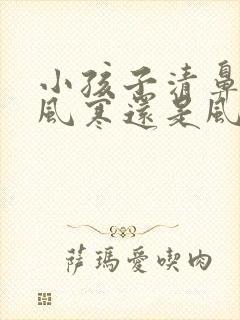 小孩子清鼻
風寒還是風
薩瑪愛喫肉